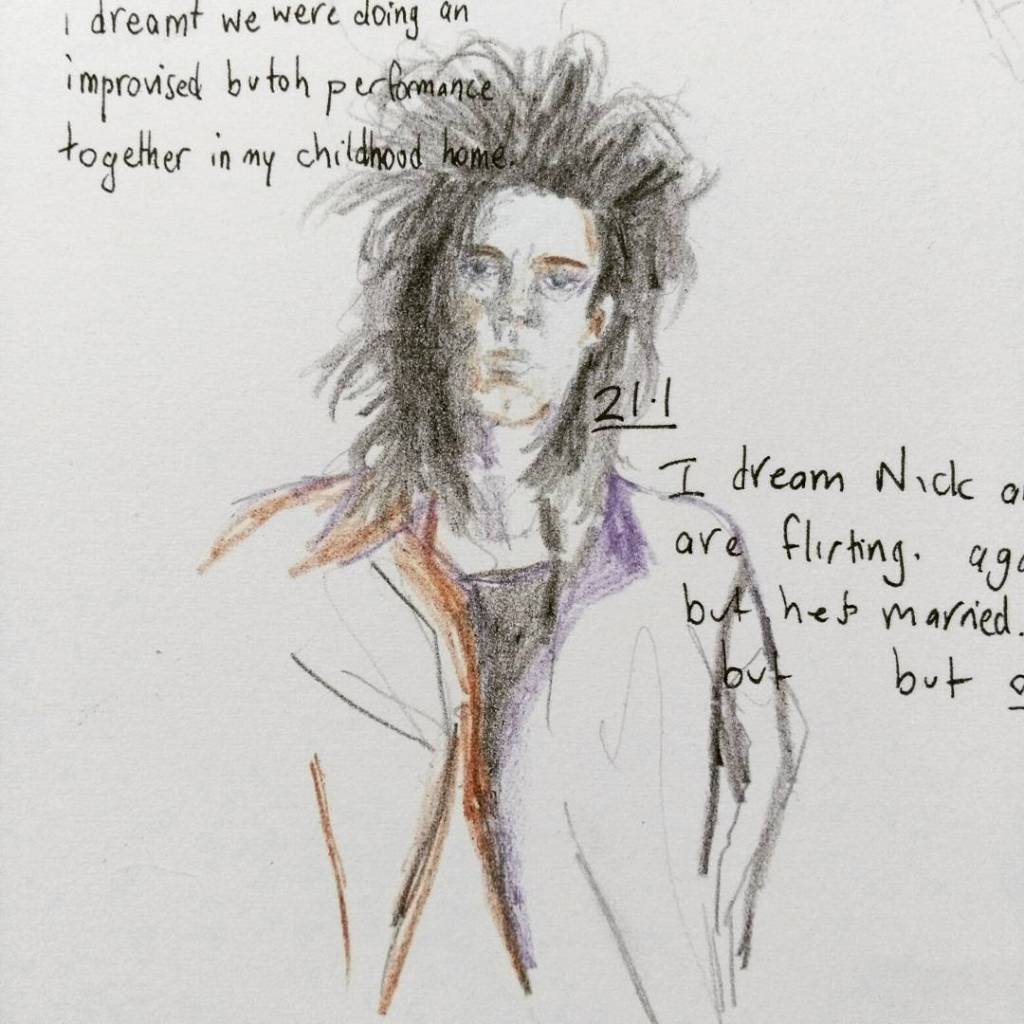 i dreamt we were doing an
improvised butoh performance
together in my childhood home.
21.1
I dream Nick
are flirting.
but he's married.
but but